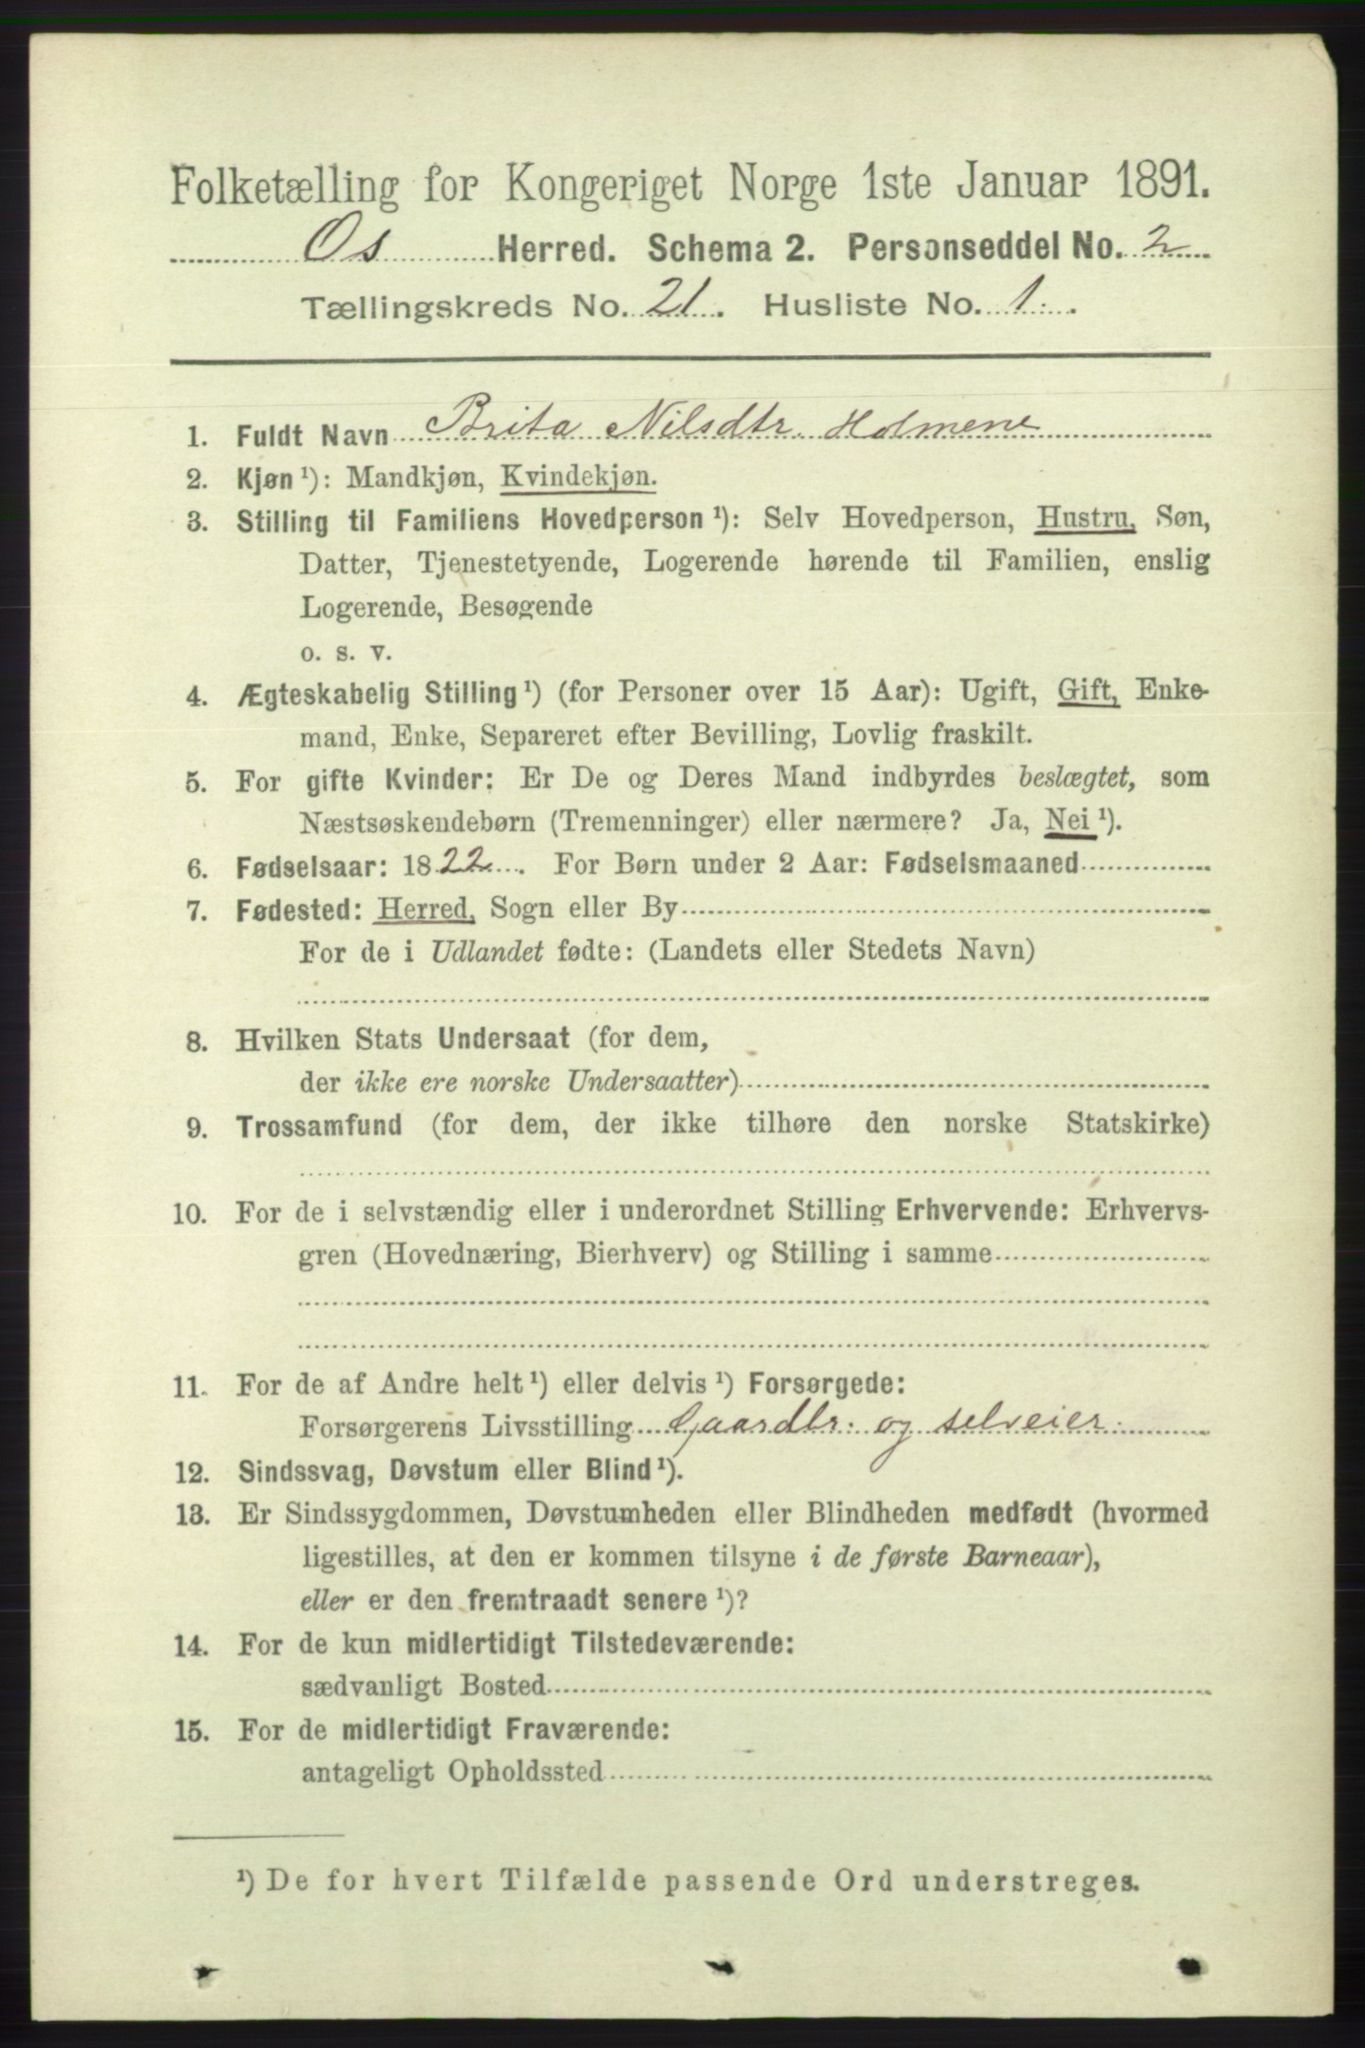 Folketælling for Kongeriget Norge 1ste Januar 1891.
Os Herred. Schema 2. Personseddel No. 2
Tællingskreds No. 21. Husliste No. 1.
1. Fuldt Navn Brita Nilsdtr. Holmene
2. Kjøn ¹): Mandkjøn, Kvindekjøn.
3. Stilling til Familiens Hovedperson ¹): Selv Hovedperson, Hustru, Søn,
Datter, Tjenestetyende, Logerende hørende til Familien, enslig
Logerende, Besøgende
o. s. v.
4. Ægteskabelig Stilling ¹) (for Personer over 15 Aar): Ugift, Gift, Enke-
mand, Enke, Separeret efter Bevilling, Lovlig fraskilt.
5. For gifte Kvinder: Er De og Deres Mand indbyrdes beslægtet, som
Næstsøskendebørn (Tremenninger) eller nærmere? Ja, Nei ¹).
6. Fødselsaar: 1822. For Børn under 2 Aar: Fødselsmaaned
7. Fødested: Herred, Sogn eller By
For de i Udlandet fødte: (Landets eller Stedets Navn)
8. Hvilken Stats Undersaat (for dem,
der ikke ere norske Undersaatter)
9. Trossamfund (for dem, der ikke tilhøre den norske Statskirke)
10. For de i selvstændig eller i underordnet Stilling Erhvervende: Erhvervs-
gren (Hovednæring, Bierhverv) og Stilling i samme
11. For de af Andre helt ¹) eller delvis ¹) Forsørgede:
Forsørgerens Livsstilling Gaardbr. og selveier.
12. Sindssvag, Døvstum eller Blind ¹).
13. Er Sindssygdommen, Døvstumheden eller Blindheden medfødt (hvormed
ligestilles, at den er kommen tilsyne i de første Barneaar),
eller er den fremtraadt senere ¹)?
14. For de kun midlertidigt Tilstedeværende:
sædvanligt Bosted
15. For de midlertidigt Fraværende:
antageligt Opholdssted
¹) De for hvert Tilfælde passende Ord understreges.